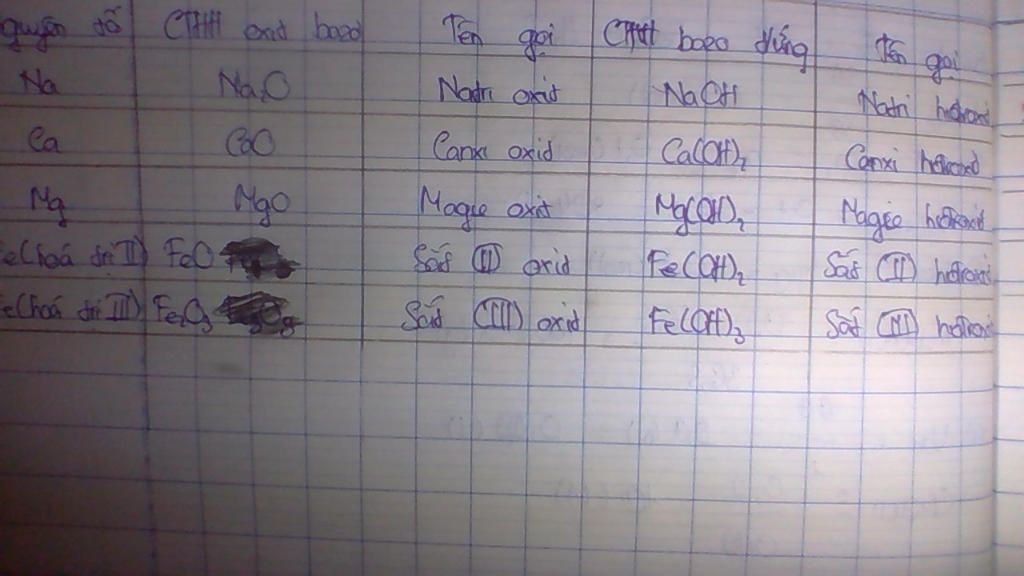 guyên tố CTHH oxid bazơ Tên gọi CTHH bazơ t/ứng Tên gọi
Na Na2O Natri oxid NaOH Natri hiđroxid
Ca CaO Canxi oxid Ca(OH)2 Canxi hiđroxid
Mg MgO Magie oxid Mg(OH)2 Magie hiđroxid
e(hoá trị II) FeO Sắt (II) oxid Fe(OH)2 Sắt (II) hiđroxi
e(hoá trị III) Fe2O3 Sắt (III) oxid Fe(OH)3 Sắt (III) hiđroxi